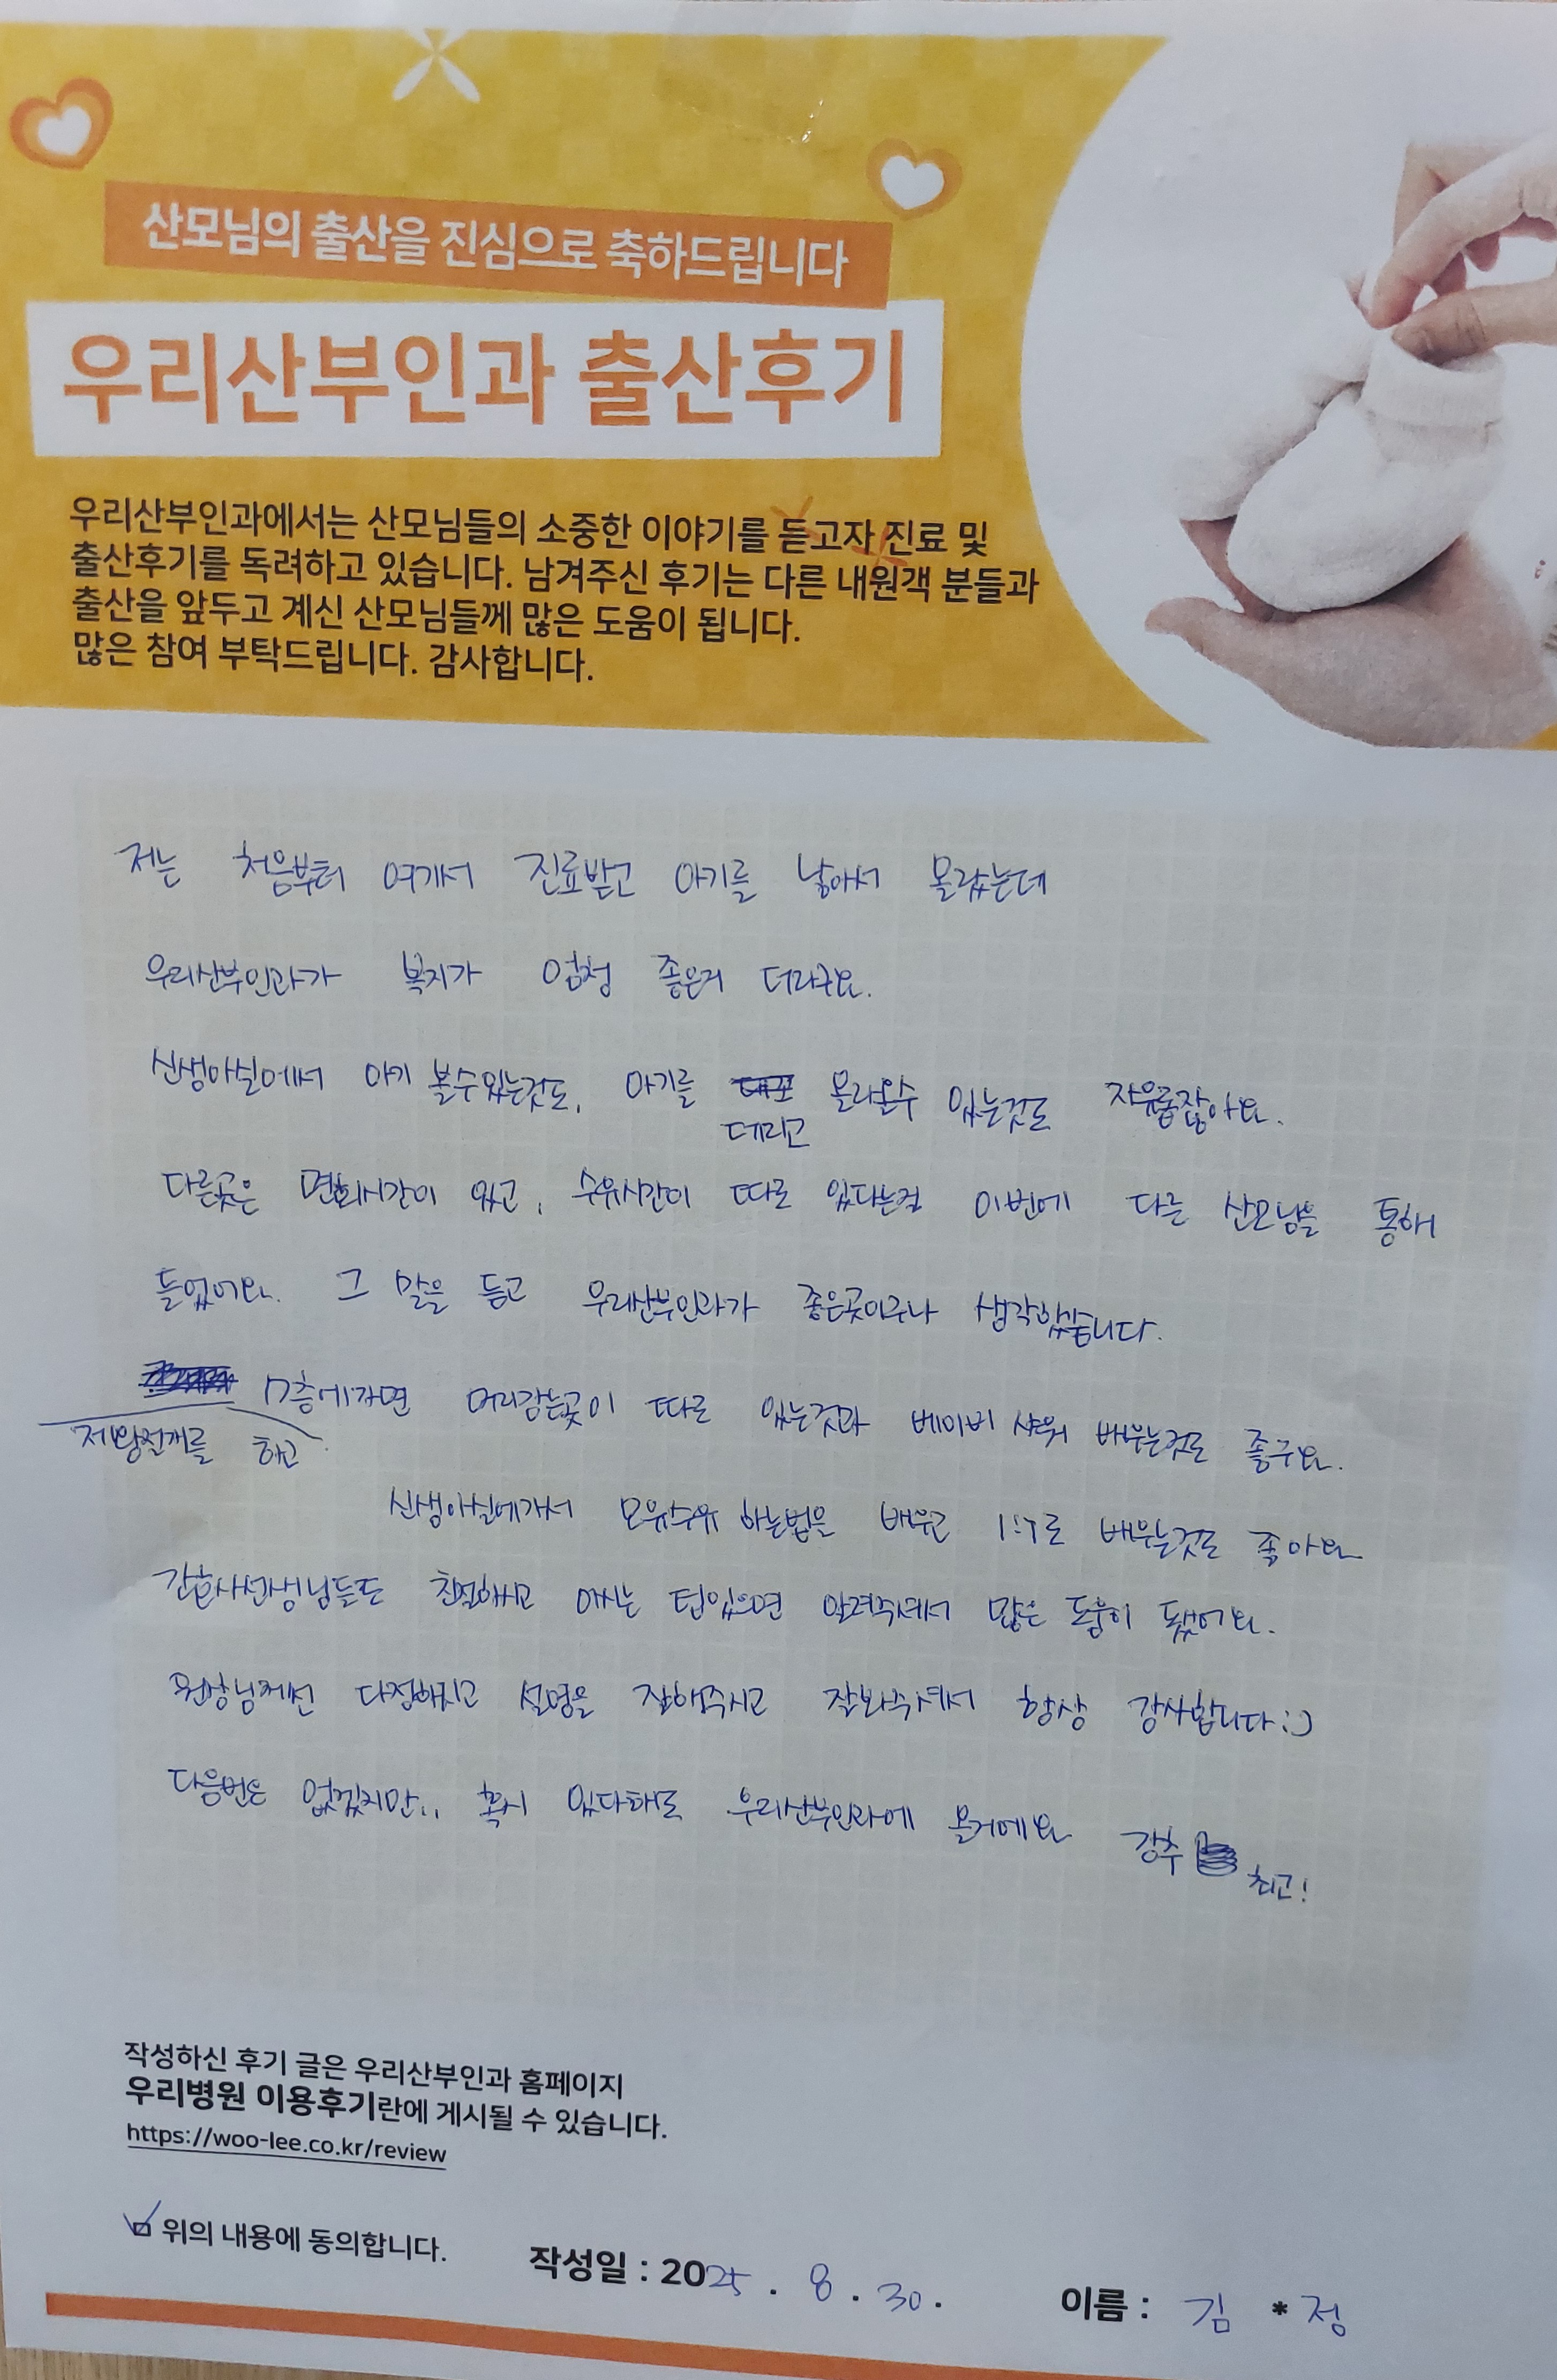 산모님의 출산을 진심으로 축하드립니다
우리산부인과 출산후기
우리산부인과에서는 산모님들의 소중한 이야기를 듣고자 진료 및
출산후기를 독려하고 있습니다. 남겨주신 후기는 다른 내원객 분들과
출산을 앞두고 계신 산모님들께 많은 도움이 됩니다.
많은 참여 부탁드립니다. 감사합니다.
저는 처음부터 여기서 진료받고 아기를 낳아서 몰랐는데
우리산부인과가 복지가 엄청 좋은거 더라구요.
신생아실에서 아기 볼수있는것도, 아기를 데리고 올라올수 있는것도 자유롭잖아요.
다른곳은 면회시간이 있고, 수유시간이 따로 있다는걸 이번에 다른 산모님을 통해
들었어요. 그 말을 듣고 우리산부인과가 좋은곳이구나 생각했습니다.
제왕절개를 하고 7층에가면 머리감는곳이 따로 있는것과 베이비 샤워 배우는것도 좋구요.
신생아실에가서 모유수유 하는법을 배우고 1:1로 배우는것도 좋아요
간호사선생님들도 친절하시고 아시는 팁있으면 알려주셔서 많은 도움이 됐어요.
원장님께선 다정하시고 설명을 잘해주시고 잘봐주셔서 항상 감사합니다:)
다음번은 없겠지만.. 혹시 있다해도 우리산부인과에 올거에요 강추 최고!
작성하신 후기 글은 우리산부인과 홈페이지
우리병원 이용후기란에 게시될 수 있습니다.
https://woo-lee.co.kr/review
위의 내용에 동의합니다.
작성일 : 2025 . 8 . 30 .
이름 : 김 * 정